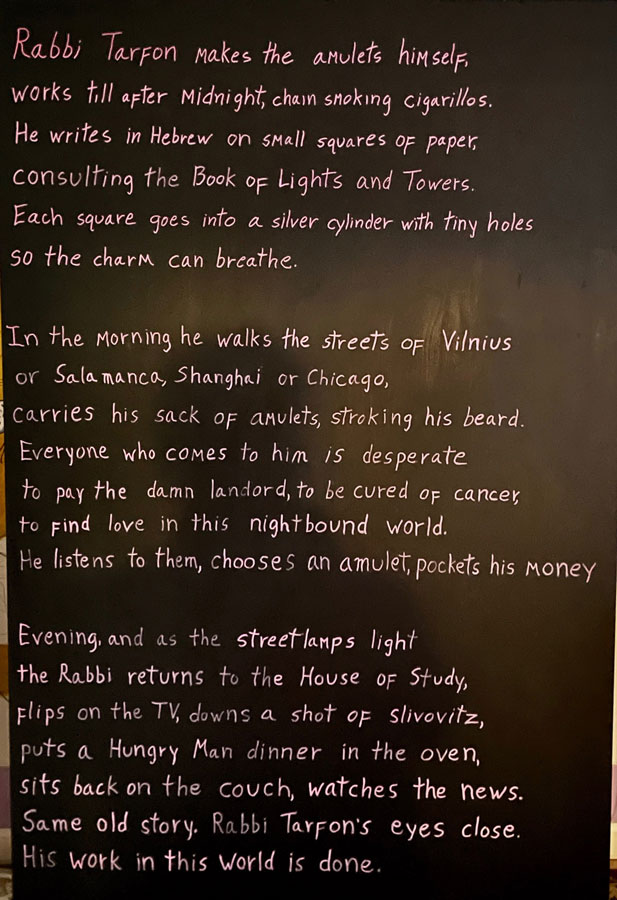 Rabbi Tarfon makes the amulets himself,
works till after midnight, chain smoking cigarillos.
He writes in Hebrew on small squares of paper,
consulting the Book of Lights and Towers.
Each square goes into a silver cylinder with tiny holes
so the charm can breathe.

In the morning he walks the streets of Vilnius
or Salamanca, Shanghai or Chicago,
carries his sack of amulets, stroking his beard.
Everyone who comes to him is desperate
to pay the damn landord, to be cured of cancer,
to find love in this nightbound world.
He listens to them, chooses an amulet, pockets his money

Evening, and as the streetlamps light
the Rabbi returns to the House of Study,
flips on the TV, downs a shot of slivovitz,
puts a Hungry Man dinner in the oven,
sits back on the couch, watches the news.
Same old story. Rabbi Tarfon's eyes close.
His work in this world is done.